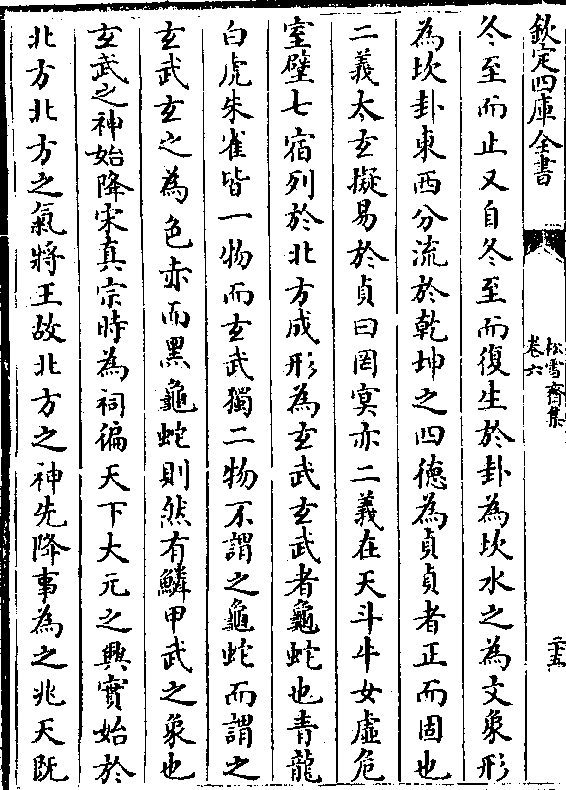 欽定四庫全書
松雪齋集
卷六
二十五
冬至而止又自冬至而復生於卦為坎水之為文象形
為坎卦東西分流於乾坤之四德為貞貞者正而固也
二義太玄擬易於貞曰罔冥亦二義在天斗牛女虛危
室壁七宿列於北方成形為玄武玄武者龜蛇也青龍
白虎朱雀皆一物而玄武獨二物不謂之龜蛇而謂之
玄武玄之為色赤而黑龜蛇則然有鱗甲武之象也
玄武之神始降宋真宗時為祠徧天下大元之興實始於
北方北方之氣將王故北方之神先降事為之兆天既